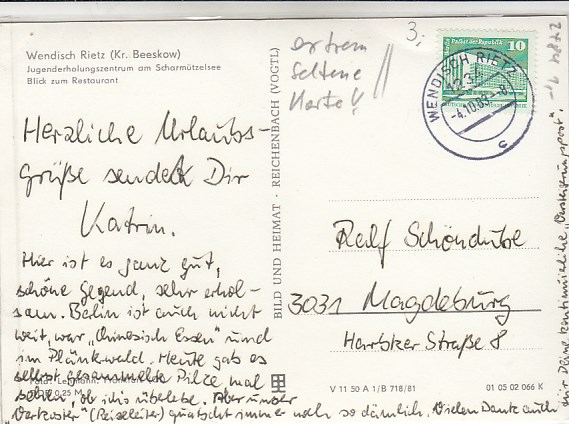 Wendisch Rietz (Kr. Beeskow)
Jugenderholungszentrum am Scharmützelsee
Blick zum Restaurant
Herzliche Urlaubs-
grüße sendet Dir
Katrin.
Hier ist es ganz gut,
schöne Gegend, sehr erhol-
sam. Berlin ist auch nicht
weit, war „Chinesisch Essen" und
im Plänterwald. Heute gab es
selbst gesammelte Pilze mal
sehen, ob ich's überlebe. Aber unser
„Vorkoster" (Reiseleiter) quatscht immer noch so dämlich. Vielen Dank auch
für Deine kontinuierliche „Versorgungspost".
Foto:
0,25 M
BILD UND HEIMAT · REICHENBACH (VOGTL)
extrem
seltene
Karte!
3,-
Palast der Republik
10
WENDISCH RIETZ
1233
-4.10.89-8
c
Ralf Schöndube
3031 Magdeburg
Harbker Straße 8
V 11 50 A 1/B 718/81
01 05 02 066 K